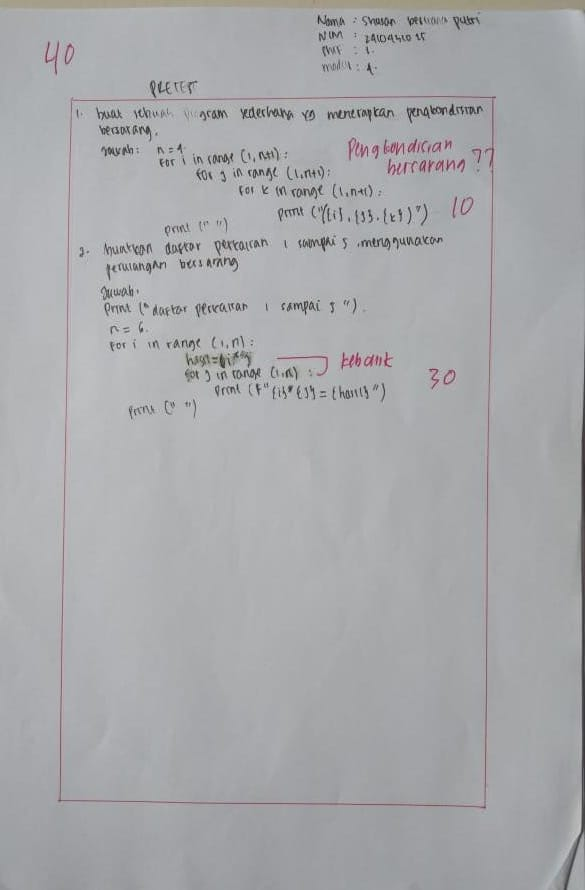 Nama : Shasan berliana putri
NIM : 2410431015
Shif : 1.
modul : 4.
40
PRETEST
1. buat sebuah program sederhana yg menerapkan pengkondisian
bersarang.
Jawab: n=4
for i in range (1, n+1) :
Pengkondisian
bersarang ??
for j in range (1, n+1):
for k in range (1, n+1) :
print ("{i}, {j}. {k}")
10
print (" ")
2. buatkan daftar perkalian 1 sampai 5 menggunakan
perulangan bersarang
Jawab.
Print ("daftar perkalian 1 sampai 5 ").
n = 6.
for i in range (1, n) :
hasil = i*j
kebalik
for j in range (1, n) :
30
Print (f" {i}* {j} = {hasil} ")
Print (" ")